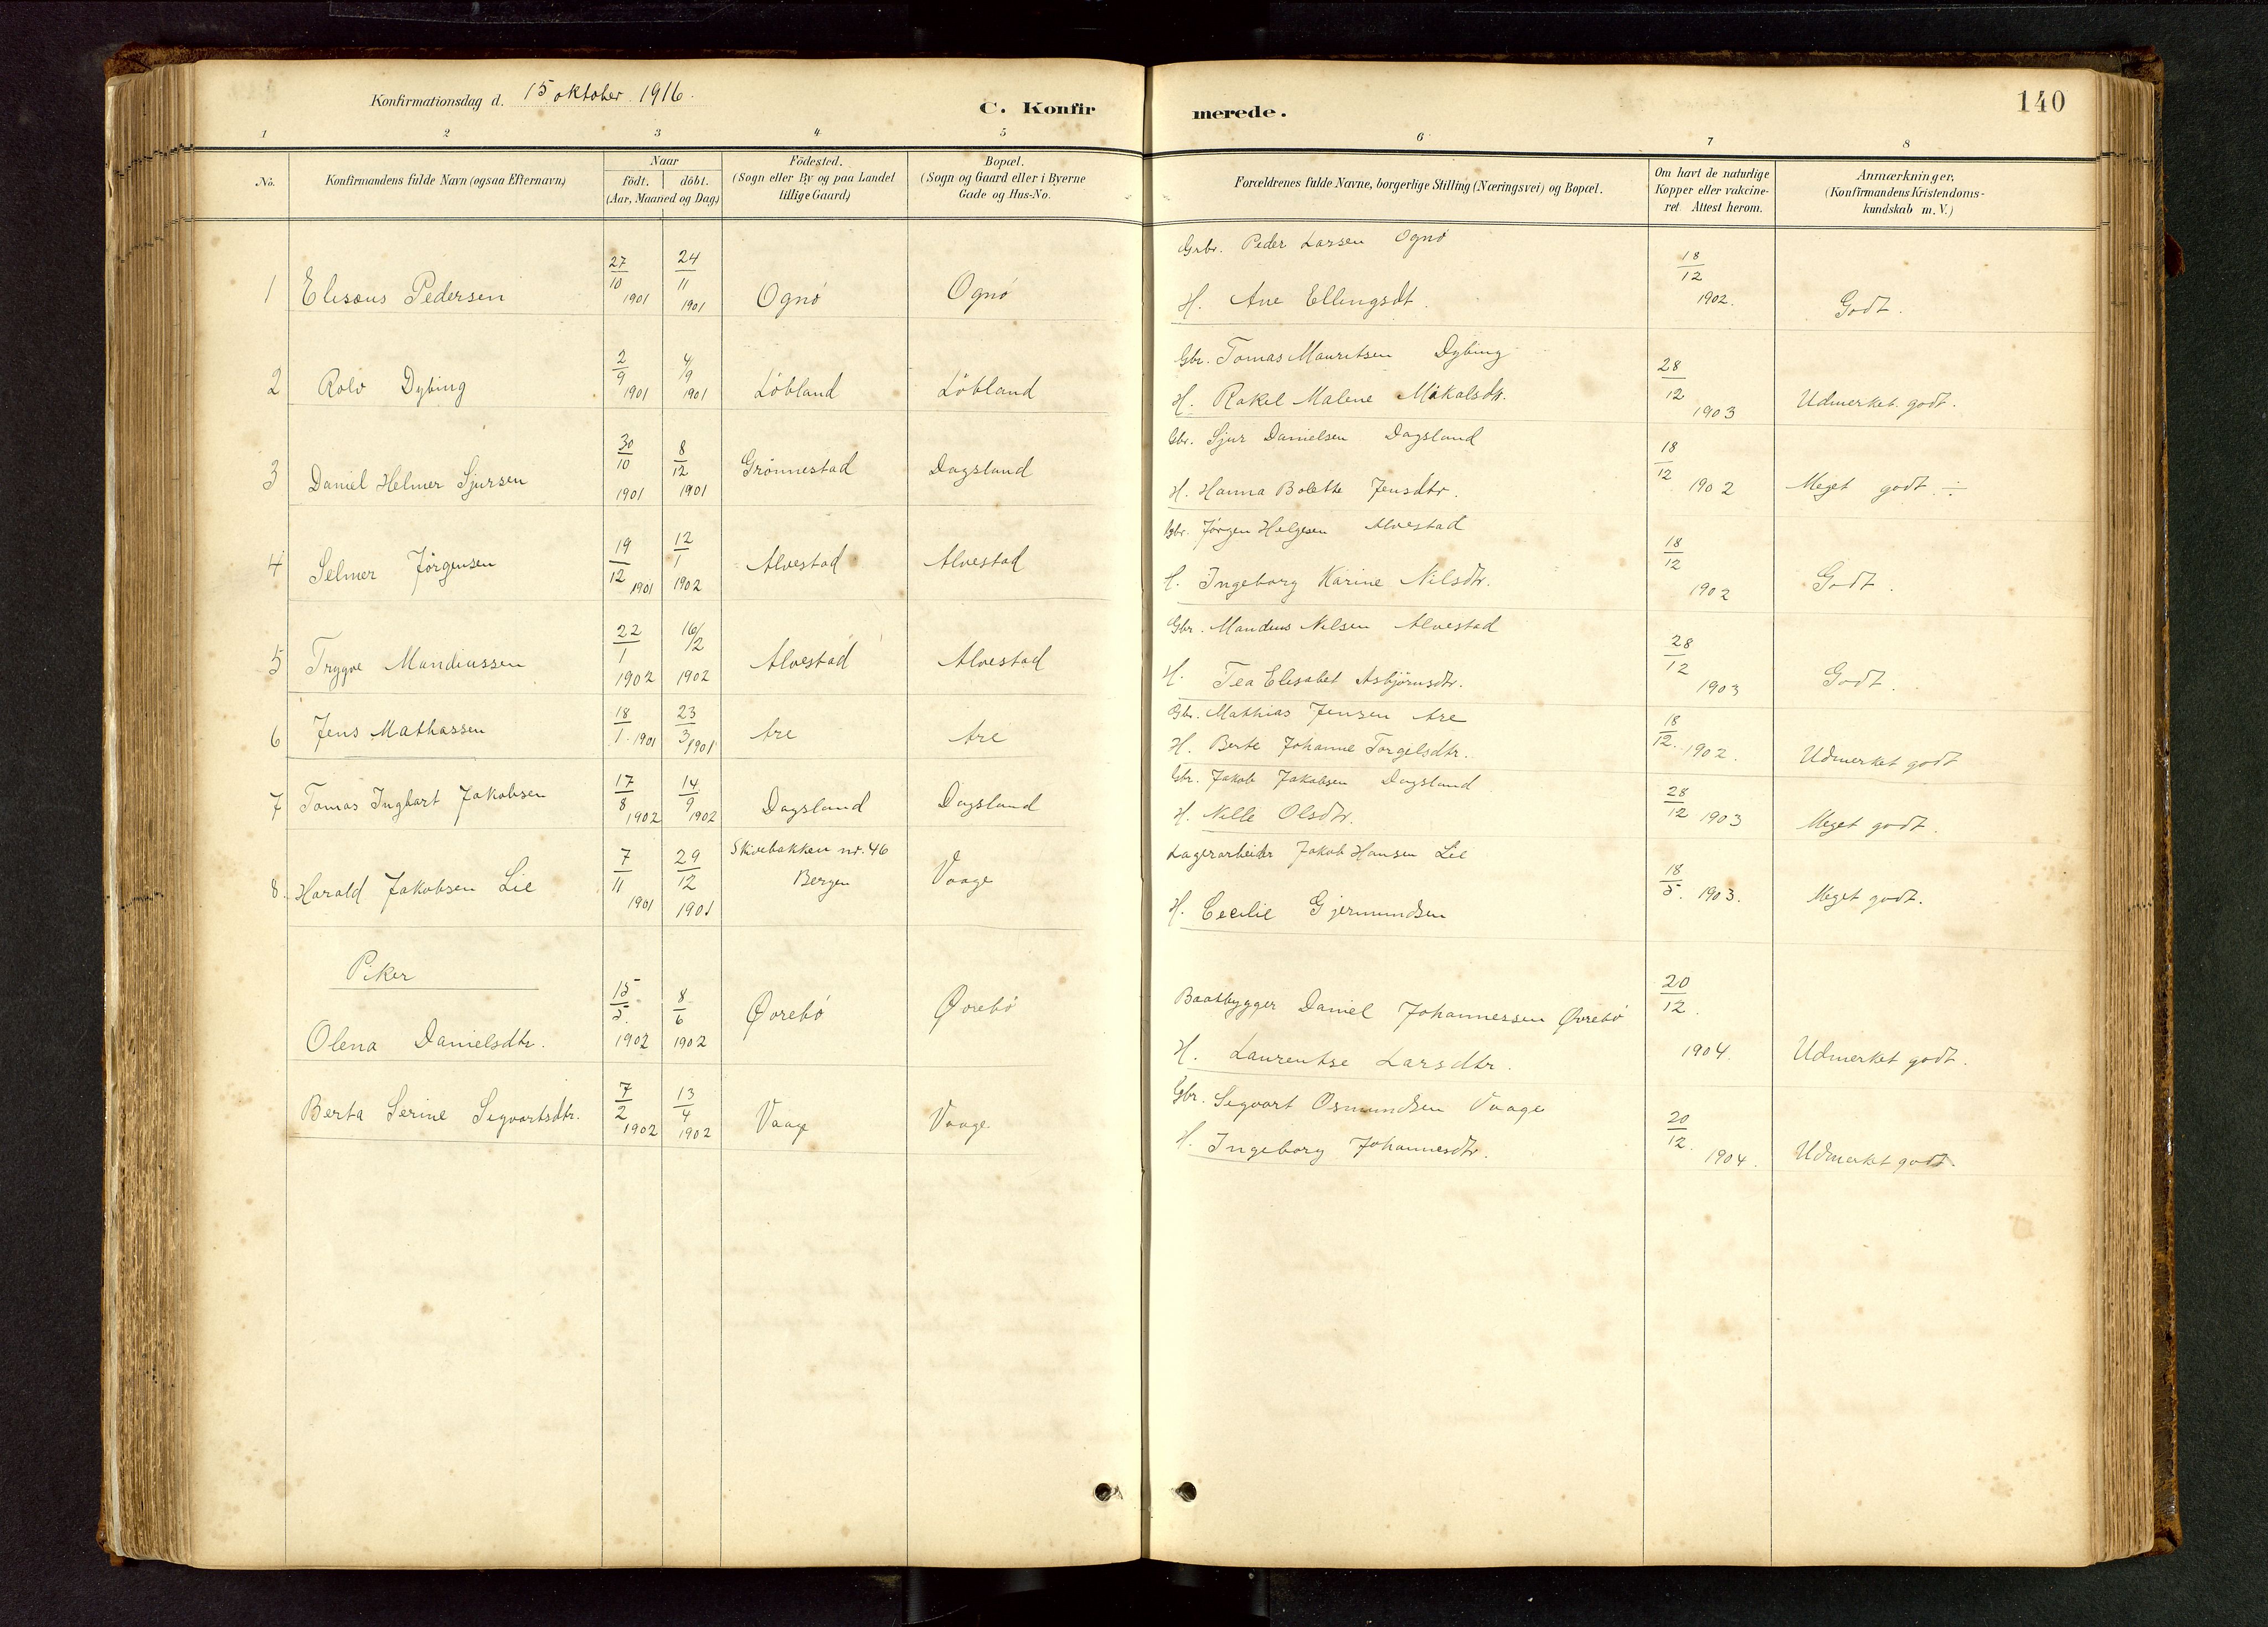 Konfirmationsdag d. 15 oktober 1916.
C. Konfirmerede.
140
1 2 3 4 5 6 7 8
No.
Konfirmandens fulde Navn (ogsaa Efternavn)
Naar
födt. döbt.
(Aar, Maaned og Dag)
Födested.
(Sogn eller By og paa Landet
tillige Gaard)
Bopæl.
(Sogn og Gaard eller i Byerne
Gade og Hus-No.
Forældrenes fulde Navne, borgerlige Stilling (Næringsvei) og Bopæl.
Om havt de naturlige
Kopper eller vakcine-
ret. Attest herom.
Anmærkninger.
(Konfirmandens Kristendoms-
kundskab m. V.)
1 Elisæus Pedersen 27/10 1901 24/11 1901 Ognö Ognö
Grbr. Peder Larsen Ognö
H. Ane Ellingsdt. 18/12 1902. Godt.
2 Rolv Dybing 2/9 1901 4/9 1901 Löbland Löbland
Gbr. Tomas Mauritsen Dybing
H. Rakel Malene Mikalsdtr. 28/12 1903 Udmerket godt.
3 Daniel Helmer Sjursen 30/10 1901 8/12 1901 Grönnestad Dagsland
Gbr. Sjur Danielsen Dagsland
H. Hanna Bolette Jensdtr. 18/12 1902 Meget godt ÷
4 Selmer Jörgensen 19/12 1901 12/1 1902 Alvestad Alvestad
Gbr. Jörgen Helgesen Alvestad
H. Ingeborg Karine Nilsdtr. 18/12 1902 Godt.
5 Trygve Mandiussen 22/1 1902 16/2 1902 Alvestad Alvestad
Gbr. Mandius Nilsen Alvestad
H. Tea Elisabet Asbjörnsdtr. 28/12 1903 Godt.
6 Jens Mathassen 18/1 1901 23/3 1901 Are Are
Gbr. Mathias Jensen Are
H. Berte Johanne Torgelsdtr. 18/12. 1902. Udmerket godt
7 Tomas Ingbart Jakobsen 17/8 1902 14/9 1902 Dagsland Dagsland
Gbr. Jakob Jakobsen Dagsland
H. Nille Olsdtr. 28/12 1903 Meget godt.
8. Harald Jakobsen Lie 7/11 1901 29/12 1901 Skivebakken nr. 46
Bergen Vaage
Lagerarbeider Jakob Hansen Lie
H. Cecilie Gjermundsen 18/5. 1903. Meget godt.
Piker
Olena Danielsdtr. 15/5. 1902 8/6 1902 Øvrebö Øvrebö
Baatbygger Daniel Johannessen Øvrebö
H. Laurentse Larsdtr. 20/12. 1904. Udmerket godt.
Berta Serine Segvartsdtr. 7/2 1902 13/4 1902 Vaage Vaage
Gbr. Segvart Osmundsen Vaage
H. Ingeborg Johannesdtr. 20/12. 1904. Udmerket godt.